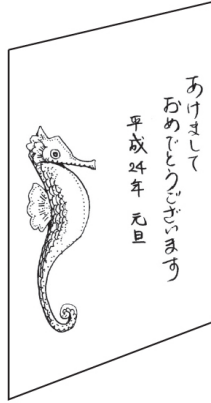 あけまして
おめでとうございます
平成24年 元旦